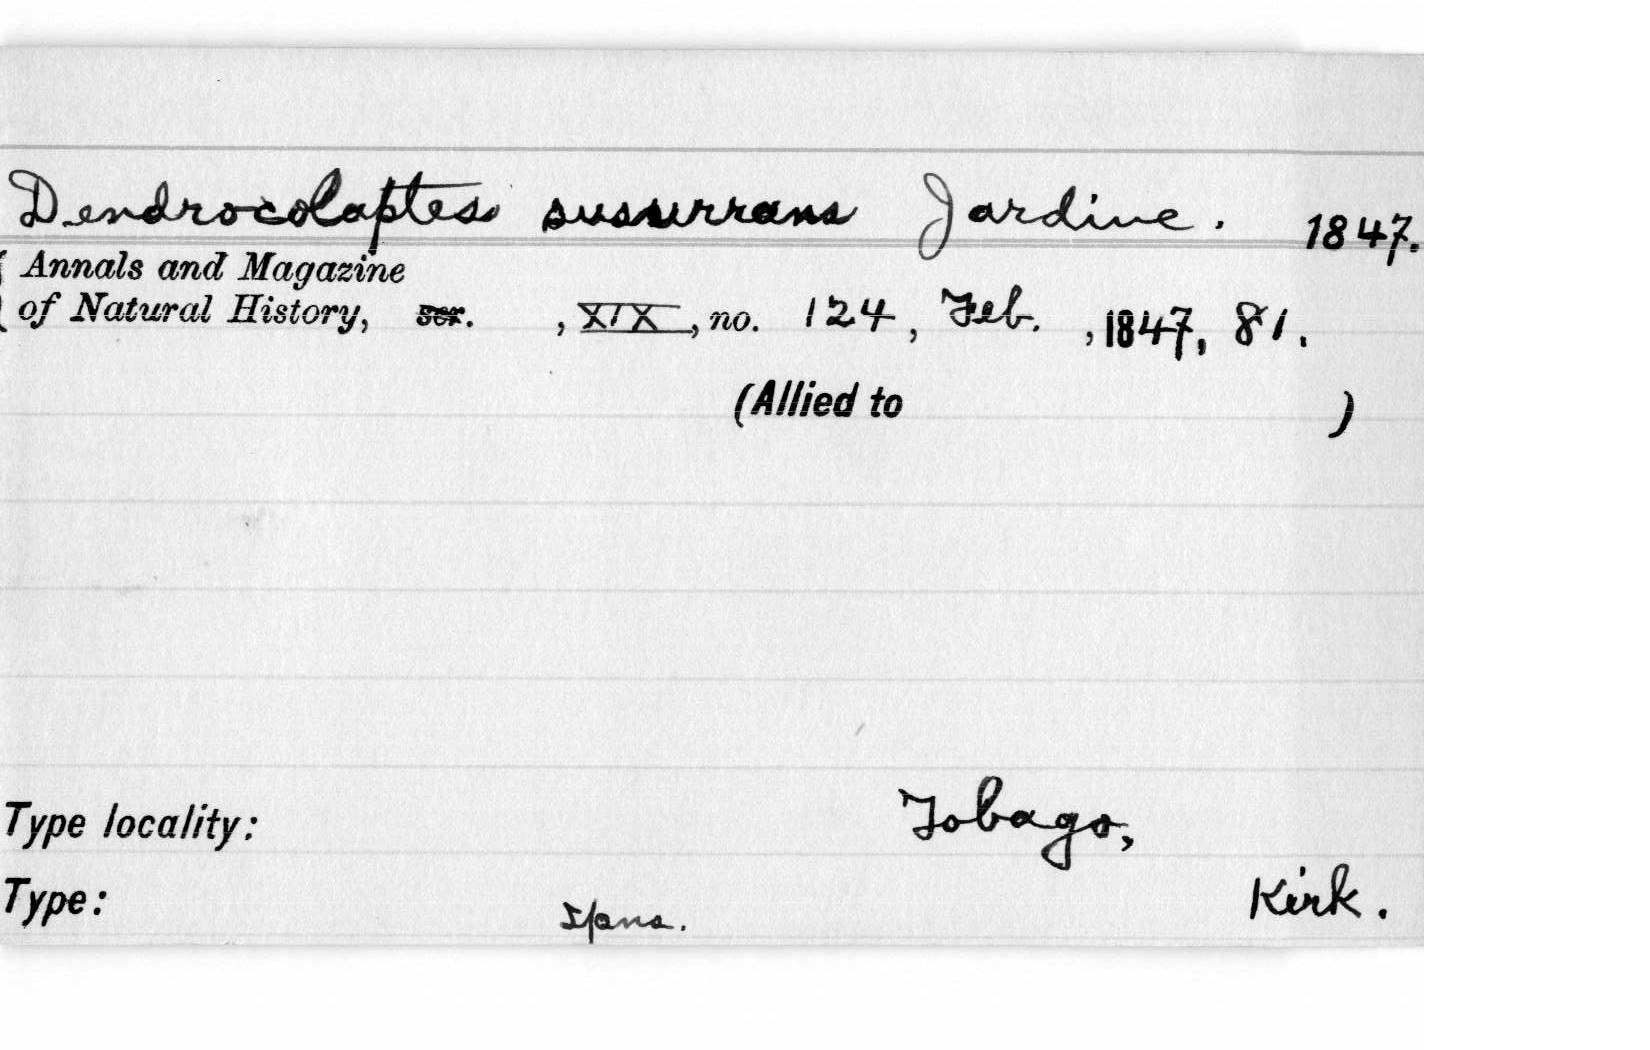 Dendrocolaptes susurrans Jardine. 1847.
Annals and Magazine
of Natural History, ser. , XIX, no. 124, Feb. , 1847, 81.
(Allied to )
Type locality: Tobago,
Type: Spns. Kirk.